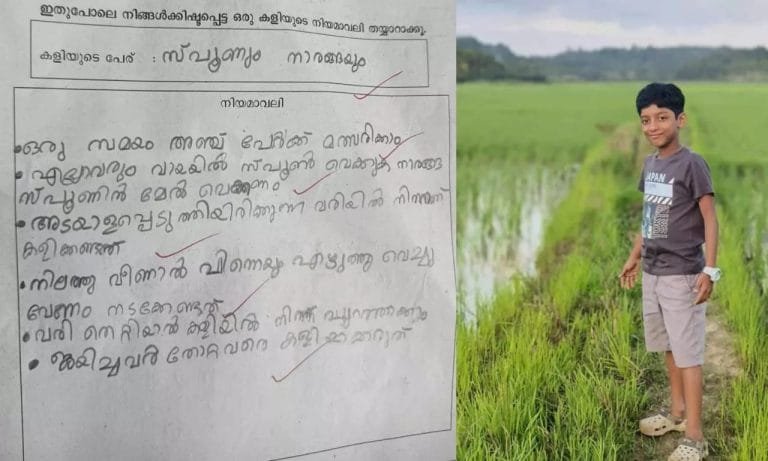 ഇതുപോലെ നിങ്ങൾക്കിഷ്ടപ്പെട്ട ഒരു കളിയുടെ നിയമാവലി തയ്യാറാക്കൂ.
കളിയുടെ പേര് : സ്പൂണും നാരങ്ങയും
നിയമാവലി
•ഒരു സമയം അഞ്ച് പേർക്ക് മത്സരിക്കാം
• എല്ലാവരും വായയിൽ സ്പൂൺ വെക്കുക നാരങ്ങ
സ്പൂണിൻ മേൽ വെക്കണം
• അടയാളപ്പെടുത്തിയിരിക്കുന്ന വരിയിൽ നിന്നാണ്
കളിക്കേണ്ടത്
•നിലത്തു വീണാൽ പിന്നെയും എടുത്തു വെച്ചു
വേണം നടക്കേണ്ടത്
• വരി തെറ്റിയാൽ കളിയിൽ നിന്ന് പുറത്താക്കും
• ജയിച്ചവർ തോറ്റവരെ കളിയാക്കരുത്
JAPAN